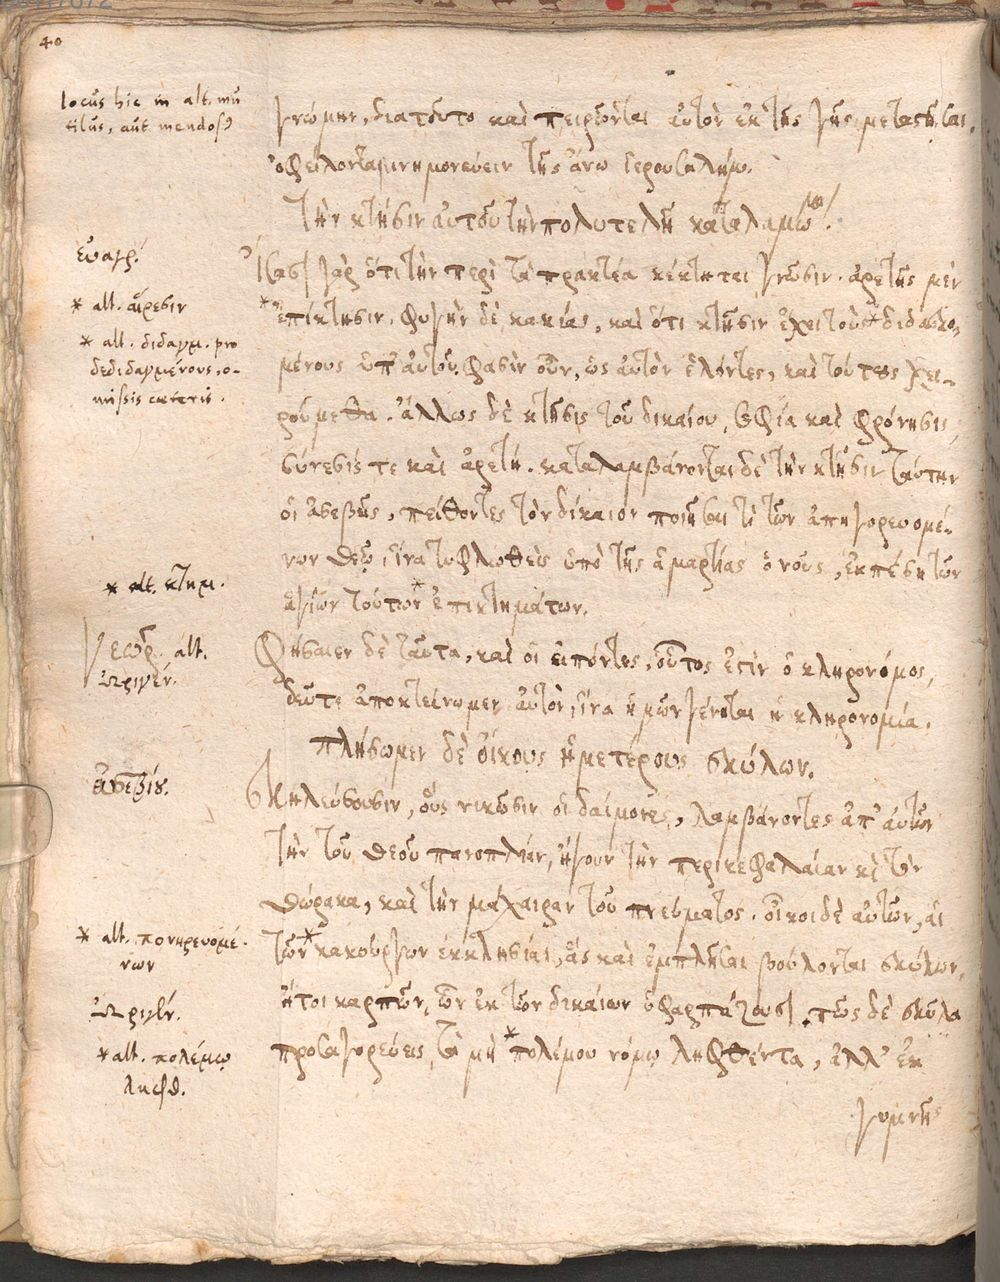 40
locus hic in alt. mu
tilus, aut mendosꝰ
γνώμην, διατοῦτο καὶ πειρῶνται αὐτὸν ἐκ τῆς γῆς μεταστῆσαι,
ὀφείλοντα μνημονεύειν τῆς ἄνω ἱερουσαλήμ.
Τὴν κτῆσιν αὐτοῦ τὴν πολυτελῆ καταλαμώ.
εὐαγρ.
φασὶ γὰρ ὅτι τὴν περὶ τὰ πρακτέα κέκτηται γνῶσιν. ἀρετῆς μὲν
* alt. αἵρεσιν
* ἐπίκτησιν, φυγὴν δὲ κακίας, καὶ ὅτι κτῆσιν ἔχει τοὺς * διδασκο-
* alt. διδαγμ. pro
dedιδαγμένους, o-
missis cæteris.
μένους ὑπ' αὐτοῦ. φασὶν οὖν, ὡς αὐτὸν ἑλόντες, καὶ τούτους χει-
ρούμεθα. ἄλλως δὲ κτῆσις τοῦ δικαίου, σοφία καὶ φρόνησις,
σύνεσίς τε καὶ ἀρετή. καταλαμβάνονται δὲ τὴν κτῆσιν ταύτην
οἱ ἀσεβεῖς, πείθοντες τὸν δίκαιον ποιῆσαι τὶ τῶν ἀπηγορευομέ-
νων θεῷ, ἵνα τυφλωθεὶς ὑπὸ τῆς ἁμαρτίας ὁ νοῦς, ἐκπέσῃ τῶν
* alt. κτημ.
ἀξίων τούτων * ἐπικτημάτων.
alt.
Ὠριγέν.
Φήσαιεν δὲ ταῦτα, καὶ οἱ εἰπόντες, οὗτός ἐστιν ὁ κληρονόμος,
δεῦτε ἀποκτείνωμεν αὐτὸν, ἵνα ἡμῶν γένηται ἡ κληρονομία.
πλήσωμεν δὲ οἴκους ἡμετέρους σκύλων.
Σκυλεύουσιν, οὓς νικῶσιν οἱ δαίμονες, λαμβάνοντες ἀπ' αὐτῶν
τὴν τοῦ θεοῦ πανοπλίαν, ἤγουν τὴν περικεφαλαίαν κὶ τὸν
θώρακα, καὶ τὴν μάχαιραν τοῦ πνεύματος. οἶκοι δὲ αὐτῶν, αἱ
* alt. πονηρευομέ-
νων
τῶν * κακούργων ἐκκλησίαι, ἃς καὶ ἐμπλῆσαι βούλονται σκύλων,
Ὠριγέν.
ἤτοι καρπῶν, ὧν ἐκ τῶν δικαίων ὑφαρπάζουσι. πῶς δὲ σκῦλα
* alt. πολέμῳ
ληφθ.
προσαγορεύεις τὰ μὴ * πολέμου νόμῳ ληφθέντα, ἀλλ' ἐκ
γυμνῆς